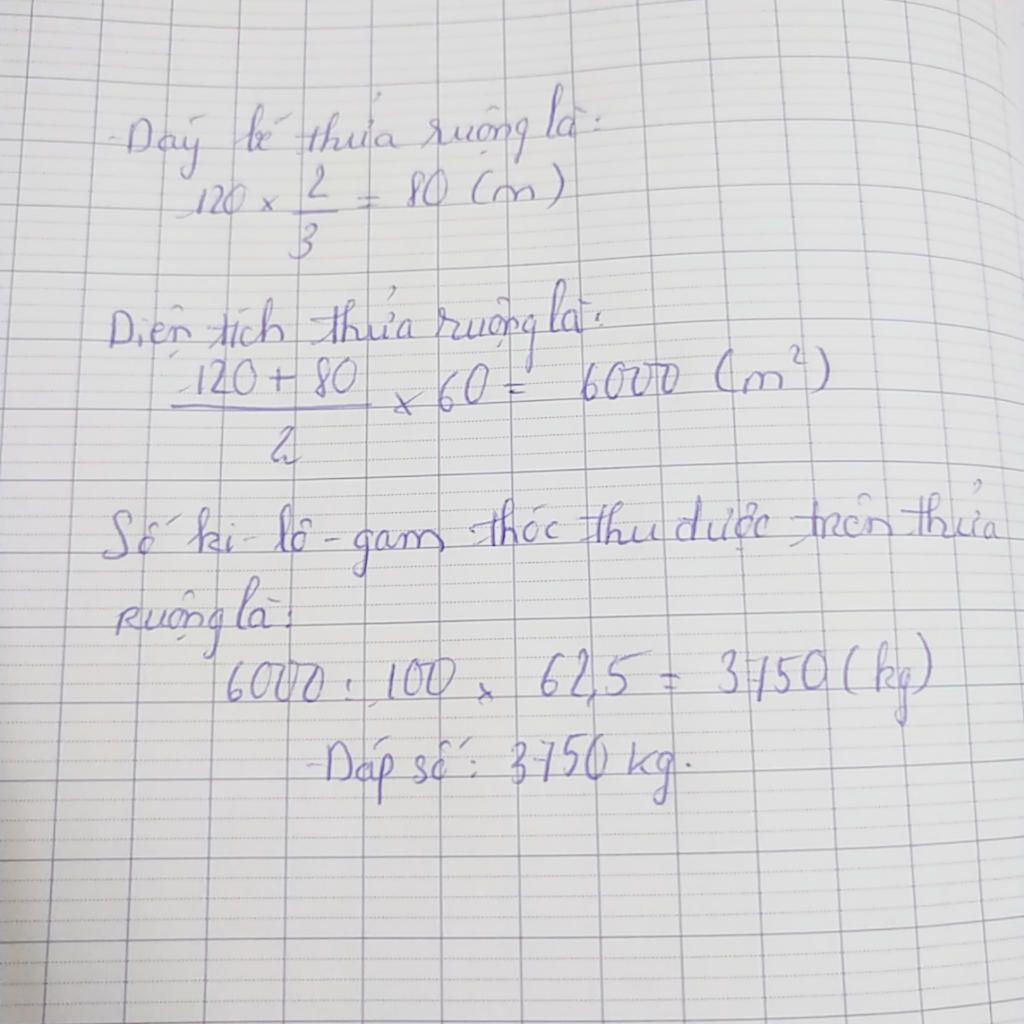 Đáy bé thửa ruộng là:
120 × 2/3 = 80 (m)
Diện tích thửa ruộng là:
(120 + 80)/2 × 60 = 6000 (m²)
Số ki-lô-gam thóc thu được trên thửa
ruộng là:
6000 : 100 × 62,5 = 3750 (kg)
Đáp số: 3750 kg.